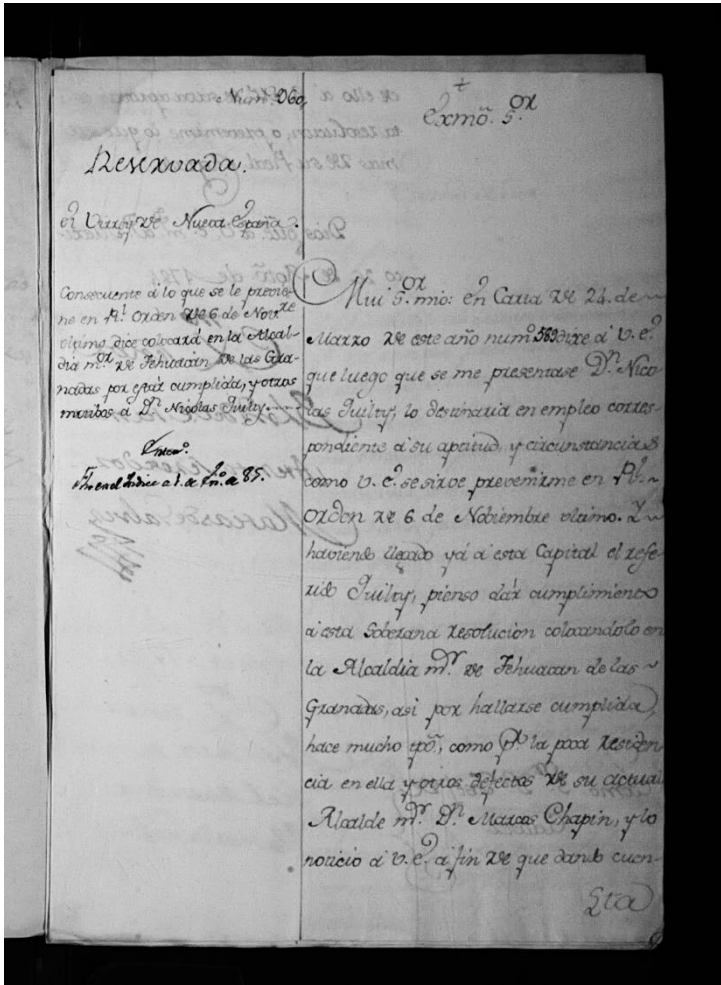 Num.º 960,
Reservada.
El Virrey de Nueva España.
Consecuente á lo que se le previe-
ne en Rl. Orden de 6 de Novre.
ultimo dice colocará en la Alcal-
dia mor. de Tehuacán de las Gra-
nadas por estár cumplida, y otros
motivos á Dn. Nicolas Quilty.
Exmô. Sor.
Mui Sor. mio: en Carta de 24. de
Marzo de este año numº. 589 dixe á V. E.
que luego que se me presentase Dn. Nico
las Quilty, lo destinaria en empleo corres-
pondiente á su aptitud, y circunstancias
como V. E. se sirve prevenirme en Rl.
Orden de 6. de Nobiembre ultimo. Y
haviendo llegado yá á esta Capital el refe-
rido Quilty, pienso dár cumplimiento
á esta Soberana resolucion colocandolo en
la Alcaldia mr. de Tehuacan de las
Granadas, asi por hallarse cumplida
hace mucho tpô, como pr. la poca residen
cia en ella y otros defectos de su actual
Alcalde mr. Dn. Marcos Chapin, y lo
noticio á V. E. á fin de que dando cuen-
ta